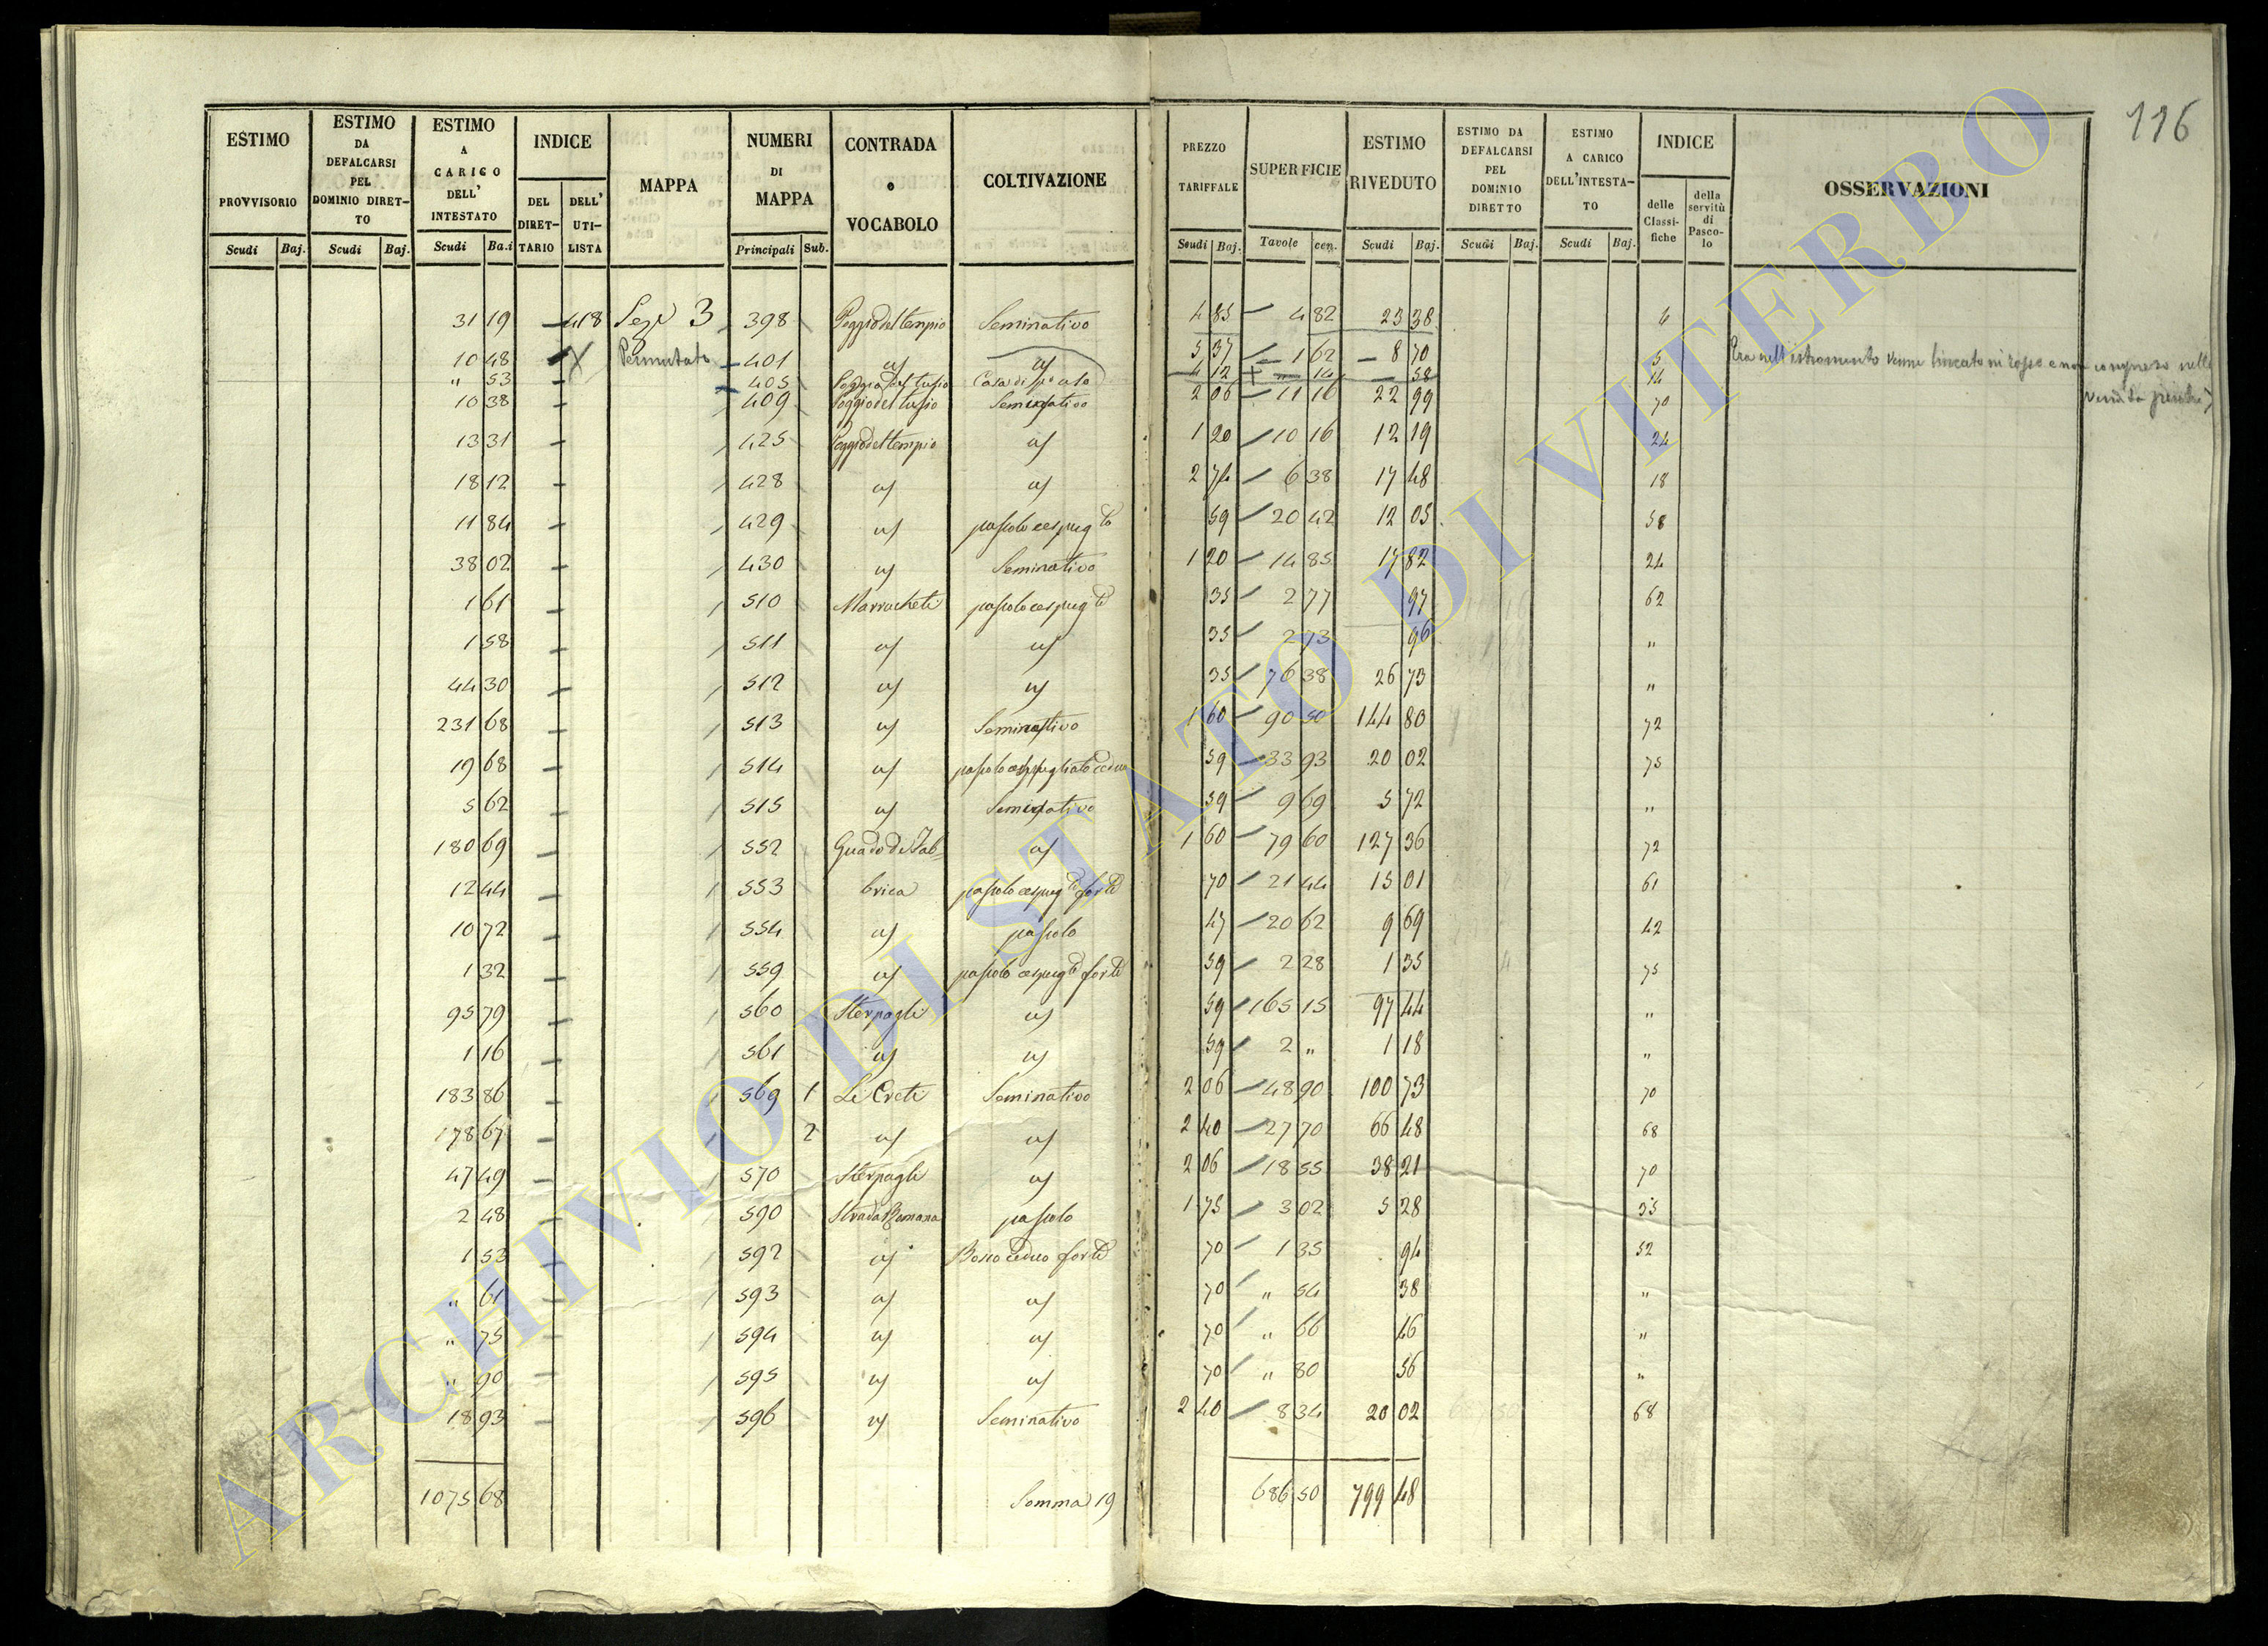 116
ESTIMO PROVVISORIO
ESTIMO DA DEFALCARSI PEL DOMINIO DIRET-TO
ESTIMO A CARICO DELL' INTESTATO
INDICE
DEL DIRET-TARIO
DELL' UTI-LISTA
MAPPA
NUMERI DI MAPPA
CONTRADA o VOCABOLO
COLTIVAZIONE
PREZZO TARIFFALE
SUPERFICIE
ESTIMO RIVEDUTO
ESTIMO DA DEFALCARSI PEL DOMINIO DIRETTO
ESTIMO A CARICO DELL'INTESTA-TO
INDICE
delle Classi-fiche
della servitù di Pasco-lo
OSSERVAZIONI
Scudi Baj. Scudi Baj. Scudi Ba.i Principali Sub. Scudi Baj. Tavole cen. Scudi Baj. Scudi Baj. Scudi Baj.
31 19 418 Sez. 3 398 Poggio del tempio Seminativo 4 85 4 82 23 38 4
10 48 Permutato 401 a/ a/ 5 37 1 62 8 70 5
" 53 405 Poggio del tufio Casa di 4 12 14 58 14
10 38 409 Poggio del tufio Seminativo 2 06 11 16 22 99 70
13 31 425 Poggio del tempio a/ 1 20 10 16 12 19 24
18 12 428 a/ a/ 2 74 6 38 17 48 18
11 84 429 a/ pascolo cespug.to 59 20 42 12 05 58
38 02 430 a/ Seminativo 1 20 14 85 17 82 24
1 61 510 Marracheti pascolo cespug.to 35 2 77 97 62
1 58 511 a/ a/ 35 2 73 96 "
44 30 512 a/ a/ 35 76 38 26 73 "
231 68 513 a/ Seminativo 1 60 90 50 144 80 72
19 68 514 a/ pascolo cespugliato 59 33 93 20 02 75
5 62 515 a/ Seminativo 59 9 69 5 72 "
180 69 552 Guado di Fab= a/ 1 60 79 60 127 36 72
12 44 553 brica pascolo cespug.to forte 70 21 44 15 01 61
10 72 554 a/ pascolo 47 20 62 9 69 42
1 32 559 a/ pascolo cespug.to forte 59 2 28 1 35 75
95 79 560 Sterpagli a/ 59 165 15 97 44 "
1 16 561 a/ a/ 59 2 " 1 18 "
183 86 569 1 Le Crete Seminativo 2 06 48 90 100 73 70
178 67 2 a/ a/ 2 40 27 70 66 48 68
47 49 570 Sterpagli a/ 2 06 18 55 38 21 70
2 48 590 Strada Romana pascolo 1 75 3 02 5 28 35
1 53 592 a/ Bosco ceduo forte 70 1 35 94 52
" 61 593 a/ a/ 70 " 54 38 "
" 75 594 a/ a/ 70 " 66 46 "
" 90 595 a/ a/ 70 " 80 56 "
18 93 596 a/ Seminativo 2 40 8 34 20 02 68
1075 68 Somma 19 686 50 799 48
ARCHIVIO DI STATO DI VITERBO